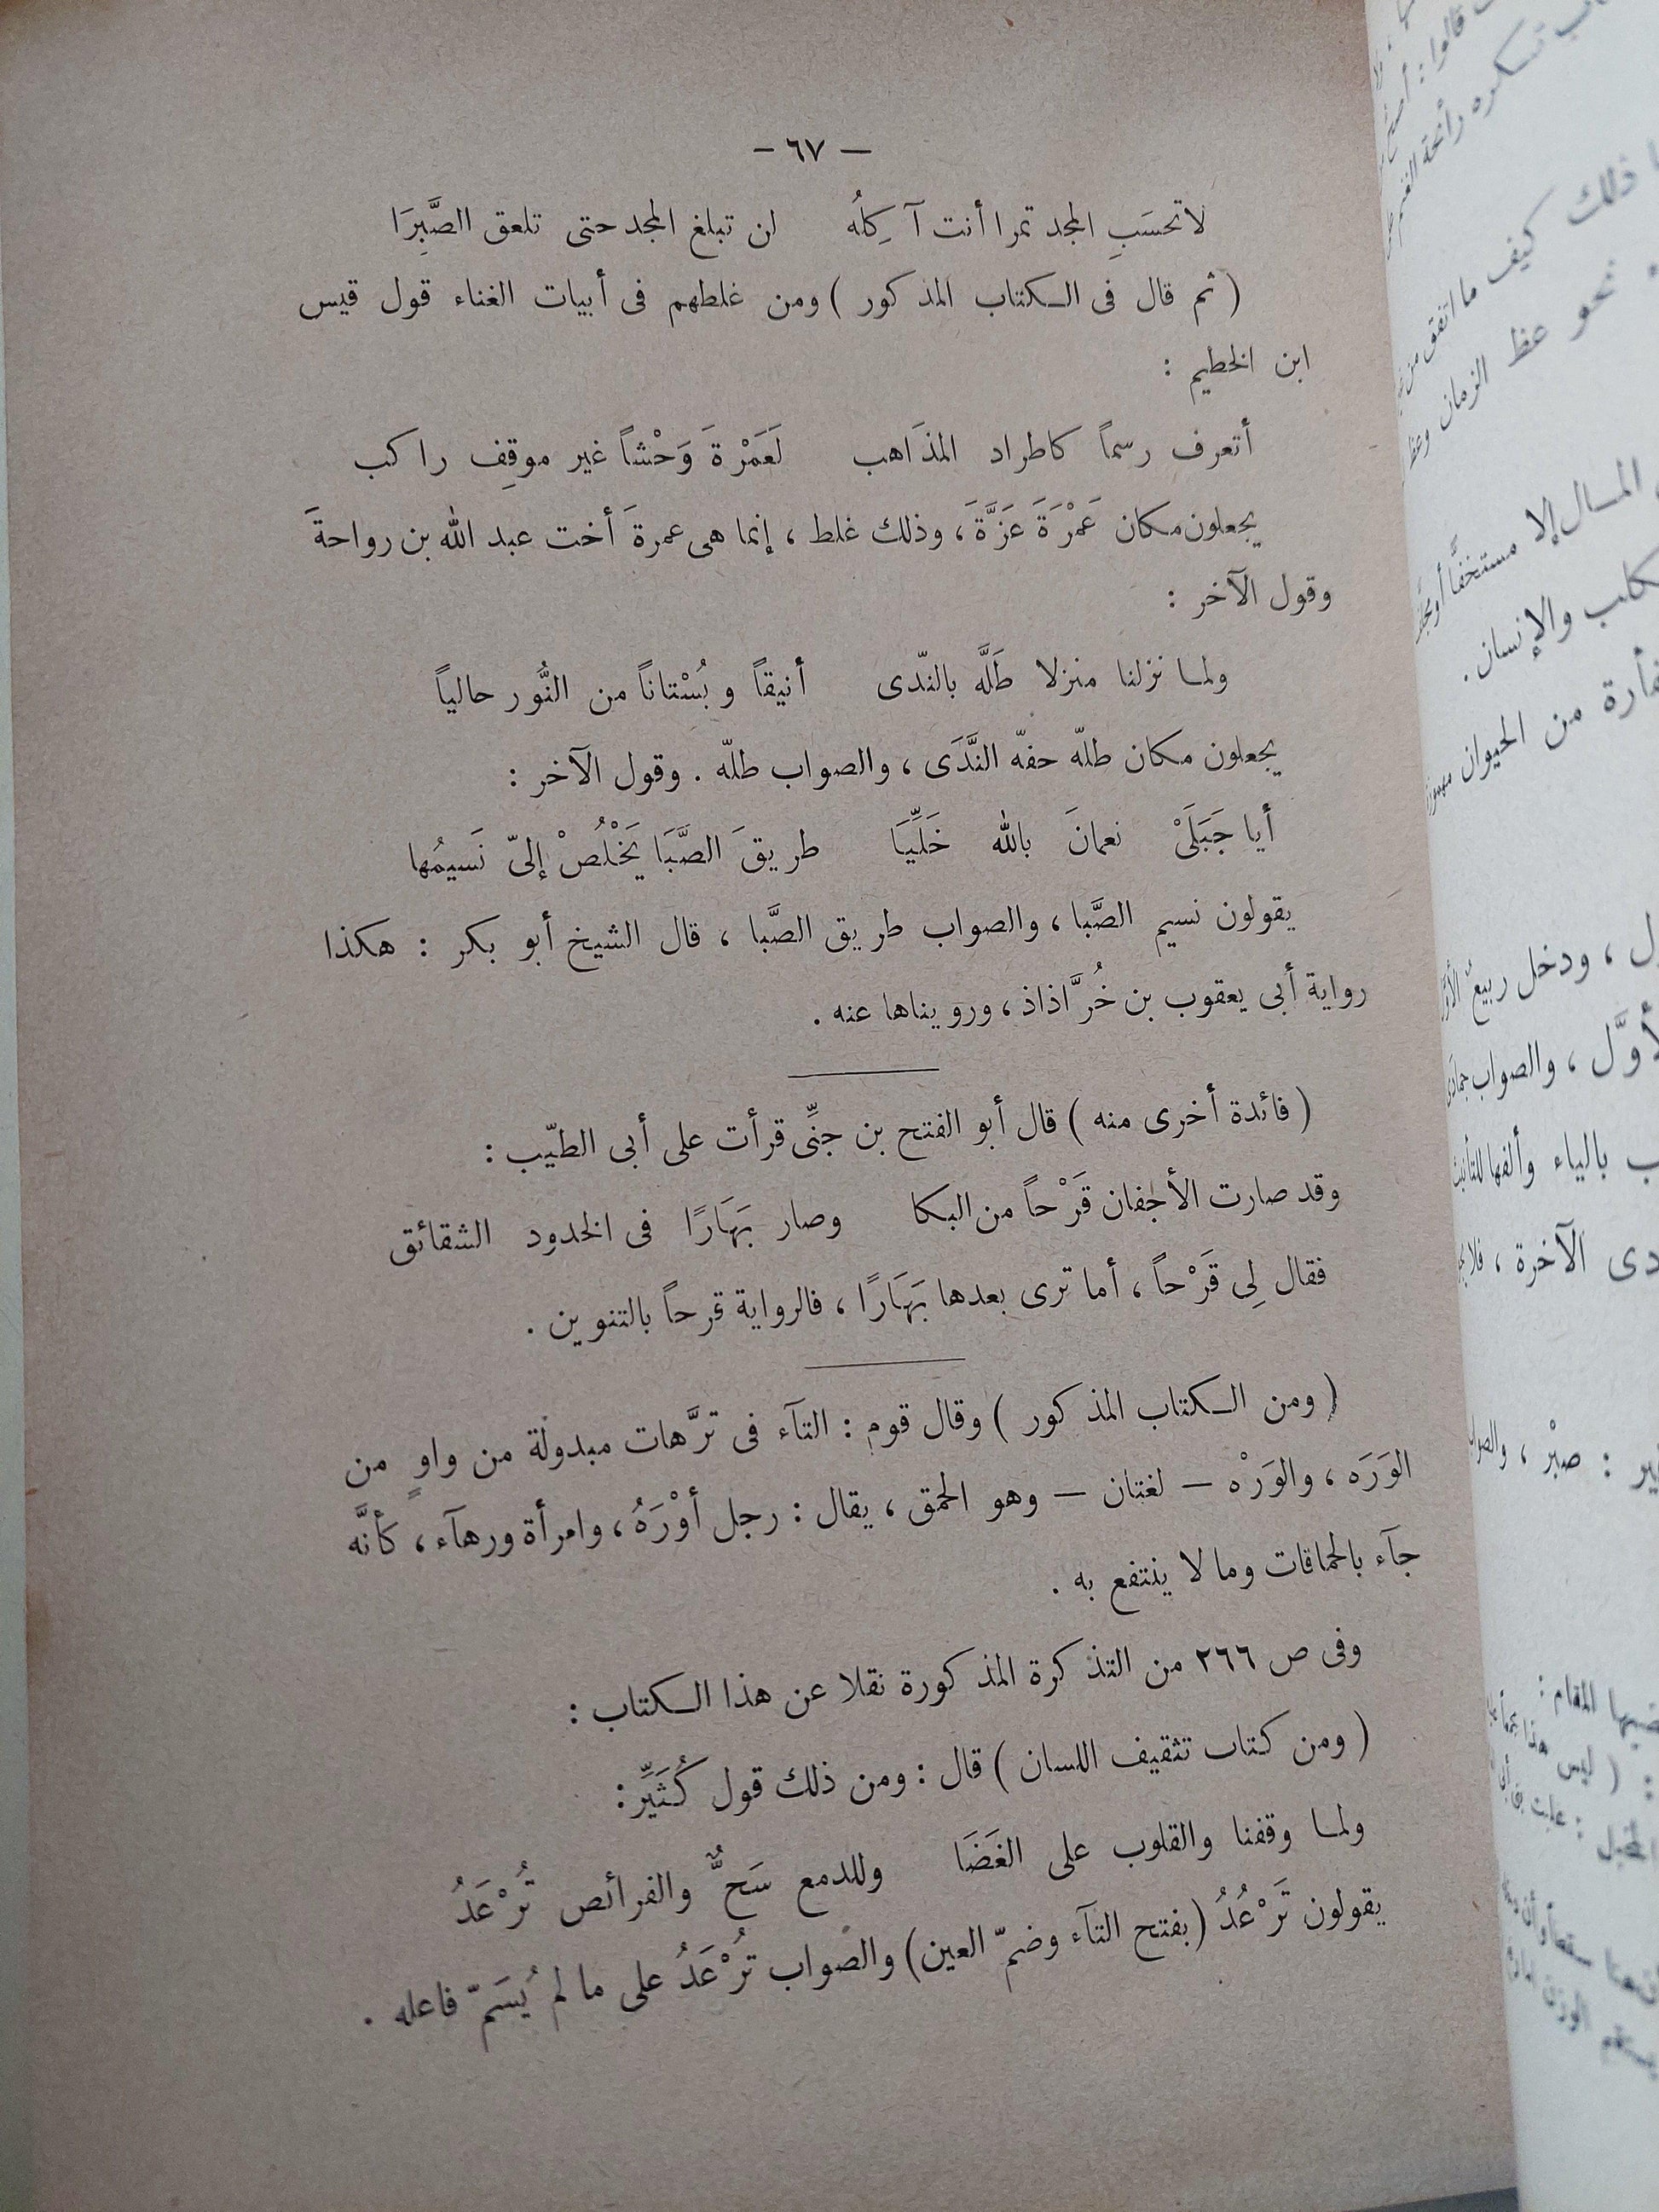 — ٦٧ —
لا تحسَبِ المجد تمرا أنت آكِلُه لن تبلغ المجد حتى تلعق الصَّبِرَا
( ثم قال فى الكتاب المذكور ) ومن غلطهم فى أبيات الغناء قول قيس
ابن الخطيم :
أتعرف رسماً كاطراد المذَاهب لَعَمْرةَ وَحْشاً غير موقِف راكب
يجعلون مكان عَمْرَةَ عَزَّةَ ، وذلك غلط ، إنما هى عمرةَ أخت عبد الله بن رواحةَ
وقول الآخر :
ولما نزلنا منزلا طَلَّه بالندّى أنيقاً وبُسْتاناً من النُّور حالياً
يجعلون مكان طلّه حفّه النَّدَى ، والصواب طلّه . وقول الآخر :
أيا جَبَلَىْ نعمانَ بالله خَلِّيَا طريقَ الصَّبَا يَخْلُصْ إلىّ نَسيمُها
يقولون نسيم الصَّبا ، والصواب طريق الصَّبا ، قال الشيخ أبو بكر : هكذا
رواية أبى يعقوب بن خُرَّاذاذ ، ورويناها عنه .
( فائدة أخرى منه ) قال أبو الفتح بن جنِّى قرأت على أبى الطيّب :
وقد صارت الأجفان قَرْحاً من البكا وصار بَهَارًا فى الخدود الشقائق
فقال لِى قَرْحاً ، أما ترى بعدها بَهَارًا ، فالرواية قرحاً بالتنوين .
( ومن الكتاب المذكور ) وقال قوم : التآء فى ترَّهات مبدولة من واوٍ من
الوَرَه ، والوَرْه — لغتان — وهو الحمق ، يقال : رجل أوْرَهُ ، وامرأة ورهآء ، كأنَّه
جآء بالحماقات وما لا ينتفع به .
وفى ص ٢٦٦ من التذكرة المذكورة نقلا عن هذا الكتاب :
( ومن كتاب تثقيف اللسان ) قال : ومن ذلك قول كُثَيِّر :
ولما وقفنا والقلوب على الغَضَا وللدمع سَحٌّ والفرائص تُرْعَدُ
يقولون تَرْعُدُ (بفتح التآء وضمّ العين) والصواب تُرْعَدُ على ما لم يُسَمّ فاعله .